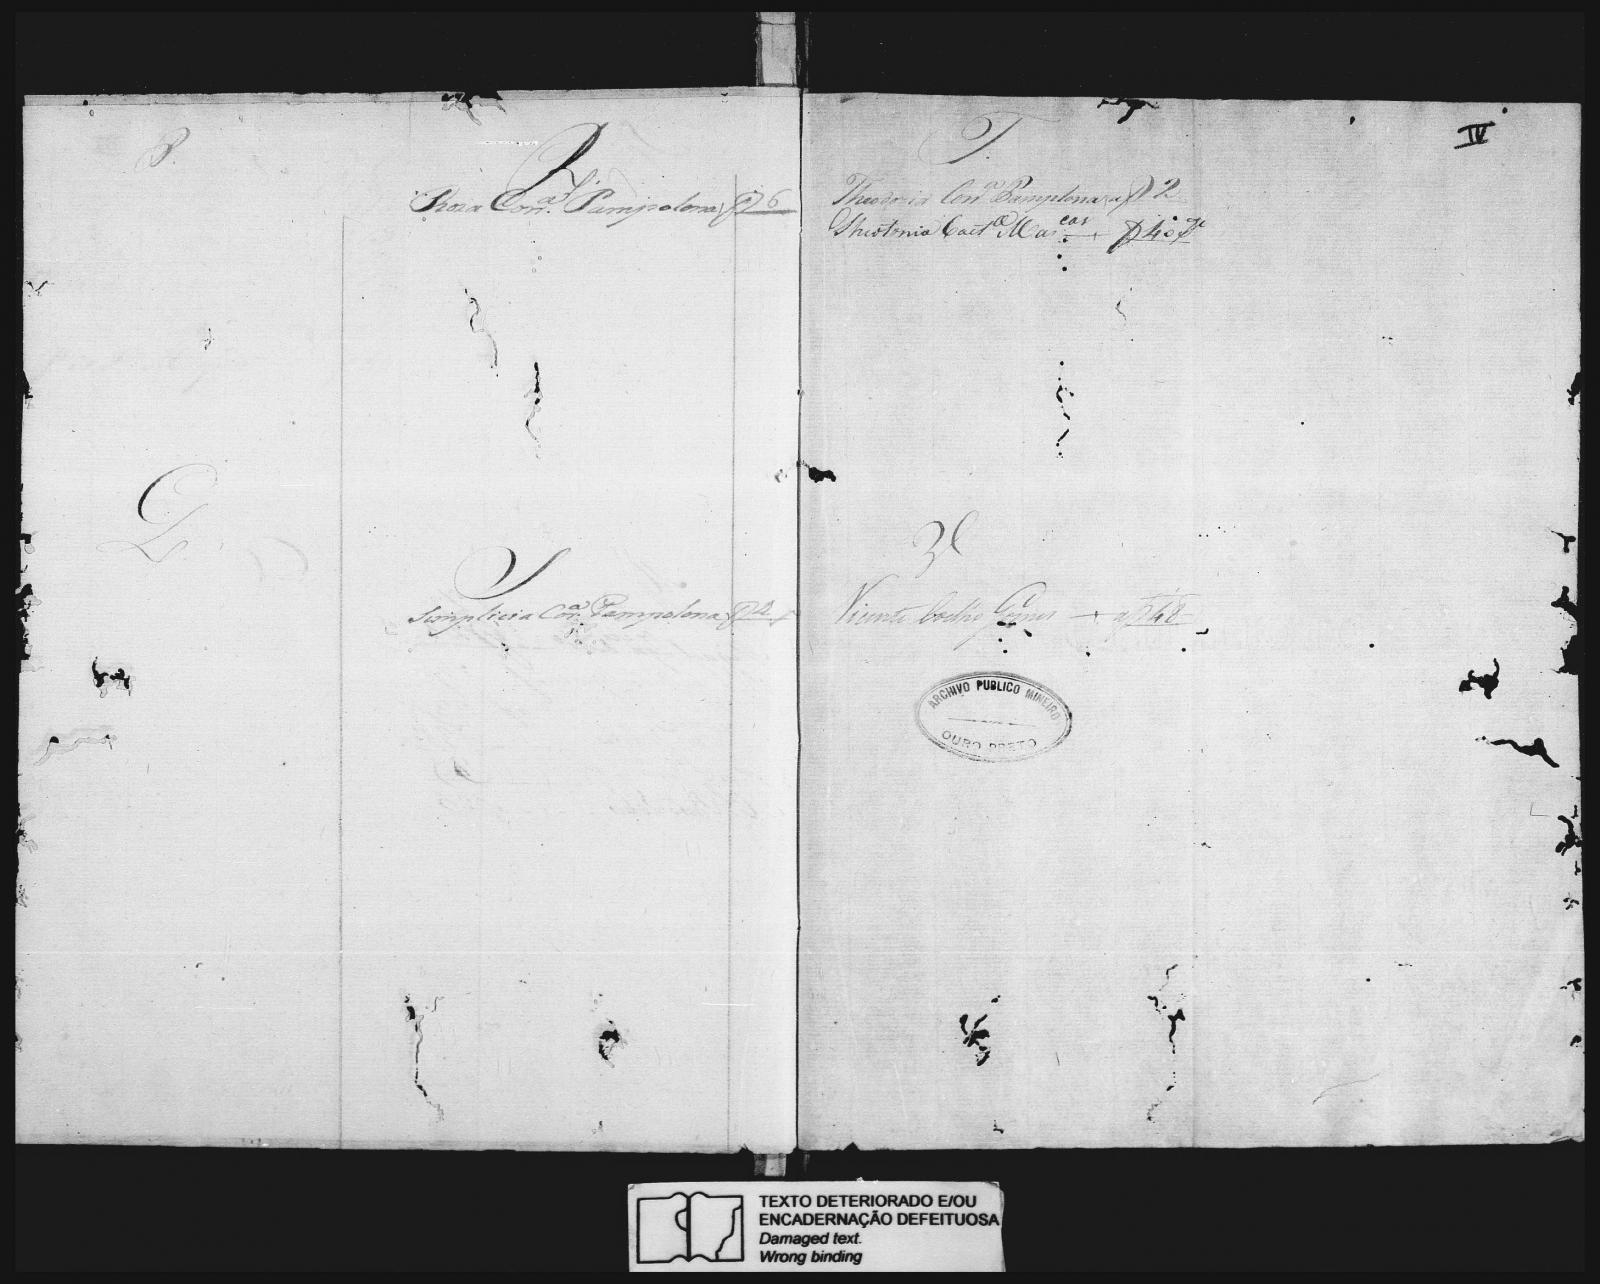 P.
R.
Roza Corr.ª Pampolona f 6
Q
S
Simplicia Cor.ª Pampolona f 4
T.
IV
Theodozia Corr.ª Pamplona a f 2
Theotonio Caet.º Mas cas f 40
V
Vicente Coelho Gomes a f 48
ARCHIVO PUBLICO MINEIRO
OURO PRETO
TEXTO DETERIORADO E/OU
ENCADERNAÇÃO DEFEITUOSA
Damaged text.
Wrong binding